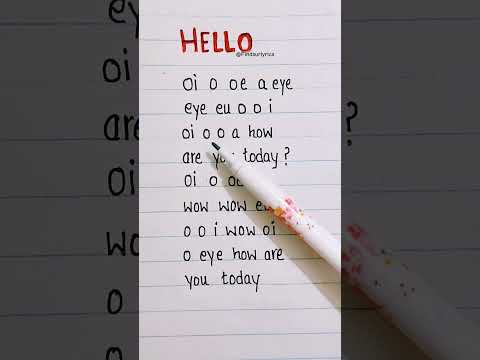 HELLO
@Findourlyrics
oi o oe a eye
eye eu o o i
oi o o a how
are today ?
oi o
wow wow
o o i wow oi
o eye how are
you today